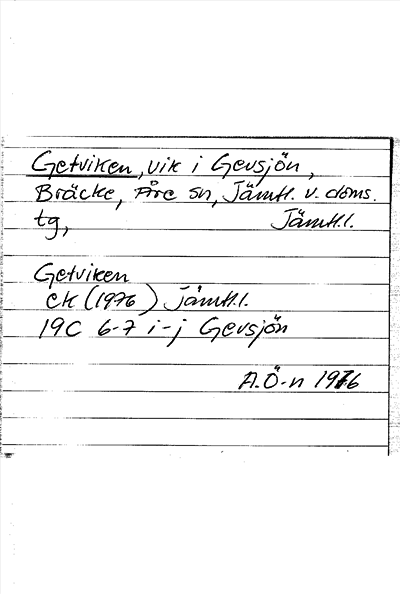 Getviken, vik i Gevsjön,
Bräcke, Åre sn, Jämtl. v. doms.
tg, Jämtl.l.
Getviken
ek (1976) Jämtl.l.
19C 6-7 i-j Gevsjön
A.Ö-n 1976